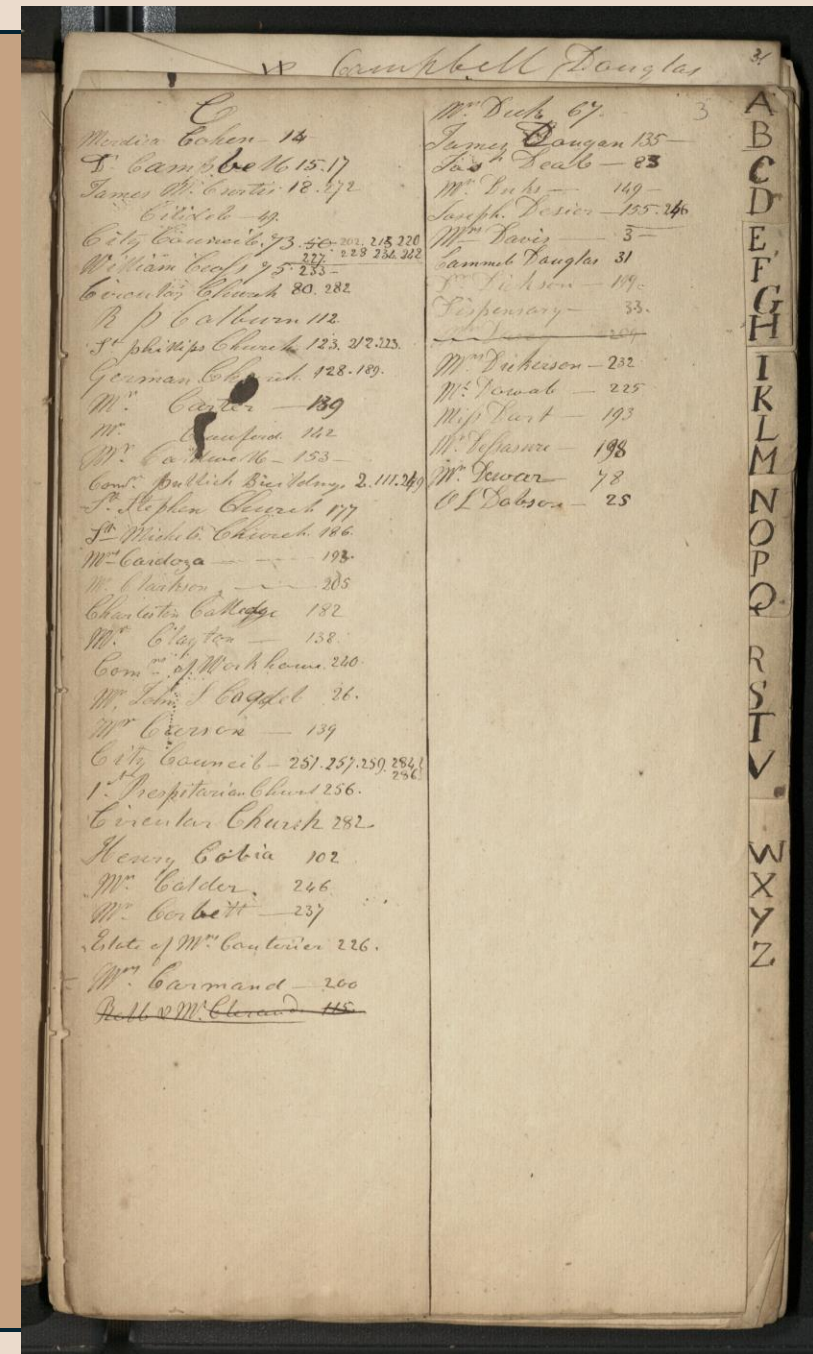 Campbell Douglas
31
3
C
Mordica Cohen - 14
Dr Campbell 15.17
James W. Curtis 18.272
Citidel - 49.
City Council. 73. 50. 202. 215 220
227. 228 234. 242
William 75. 233 -
Circular Church 80. 282
R P Colburn 112
St phillips Church 123. 212.223.
German Church 128.189.
Mr. Carter - 139
Mr. Crauford 142
Mr. - 153 -
Comrs. publick Buildings 2.111.249
St. Stephen Church 177
St Michels Church 186
Mrs Cardoza - 193
M. Clarkson - 205
Charleston Calledge 182
Mr. Clayton - 138.
Comrs of Workhouse 240.
Mr. John S Cogdel 26.
Mr Carson - 139
City Council - 251.257.259.284
286
1st. Prespitarian Church 256.
Circular Church 282
Henry Cobia 102
Mr. Calder. 246
Mr. Corbett - 237
Estate of Mrs. Couturier 226.
Mrs Carmand - 200
115
Mr. Deck 67.
James Dougan 135 -
Jos Deal - 83
Mr. - 149 -
Joseph. Desier - 155.246
Mrs Davis - 3 -
Sammel Douglas 31
Dr Dickson - 199 -
Dispensary - 33.
204
Mrs Dickerson - 232
225
Miss Dart - 193
Mr. Dessasure - 198
Mr. Dewar - 78
O L Dobson - 25
A
B
C
D
E
F
G
H
I
K
L
M
N
O
P
Q
R
S
T
V
W
X
Y
Z